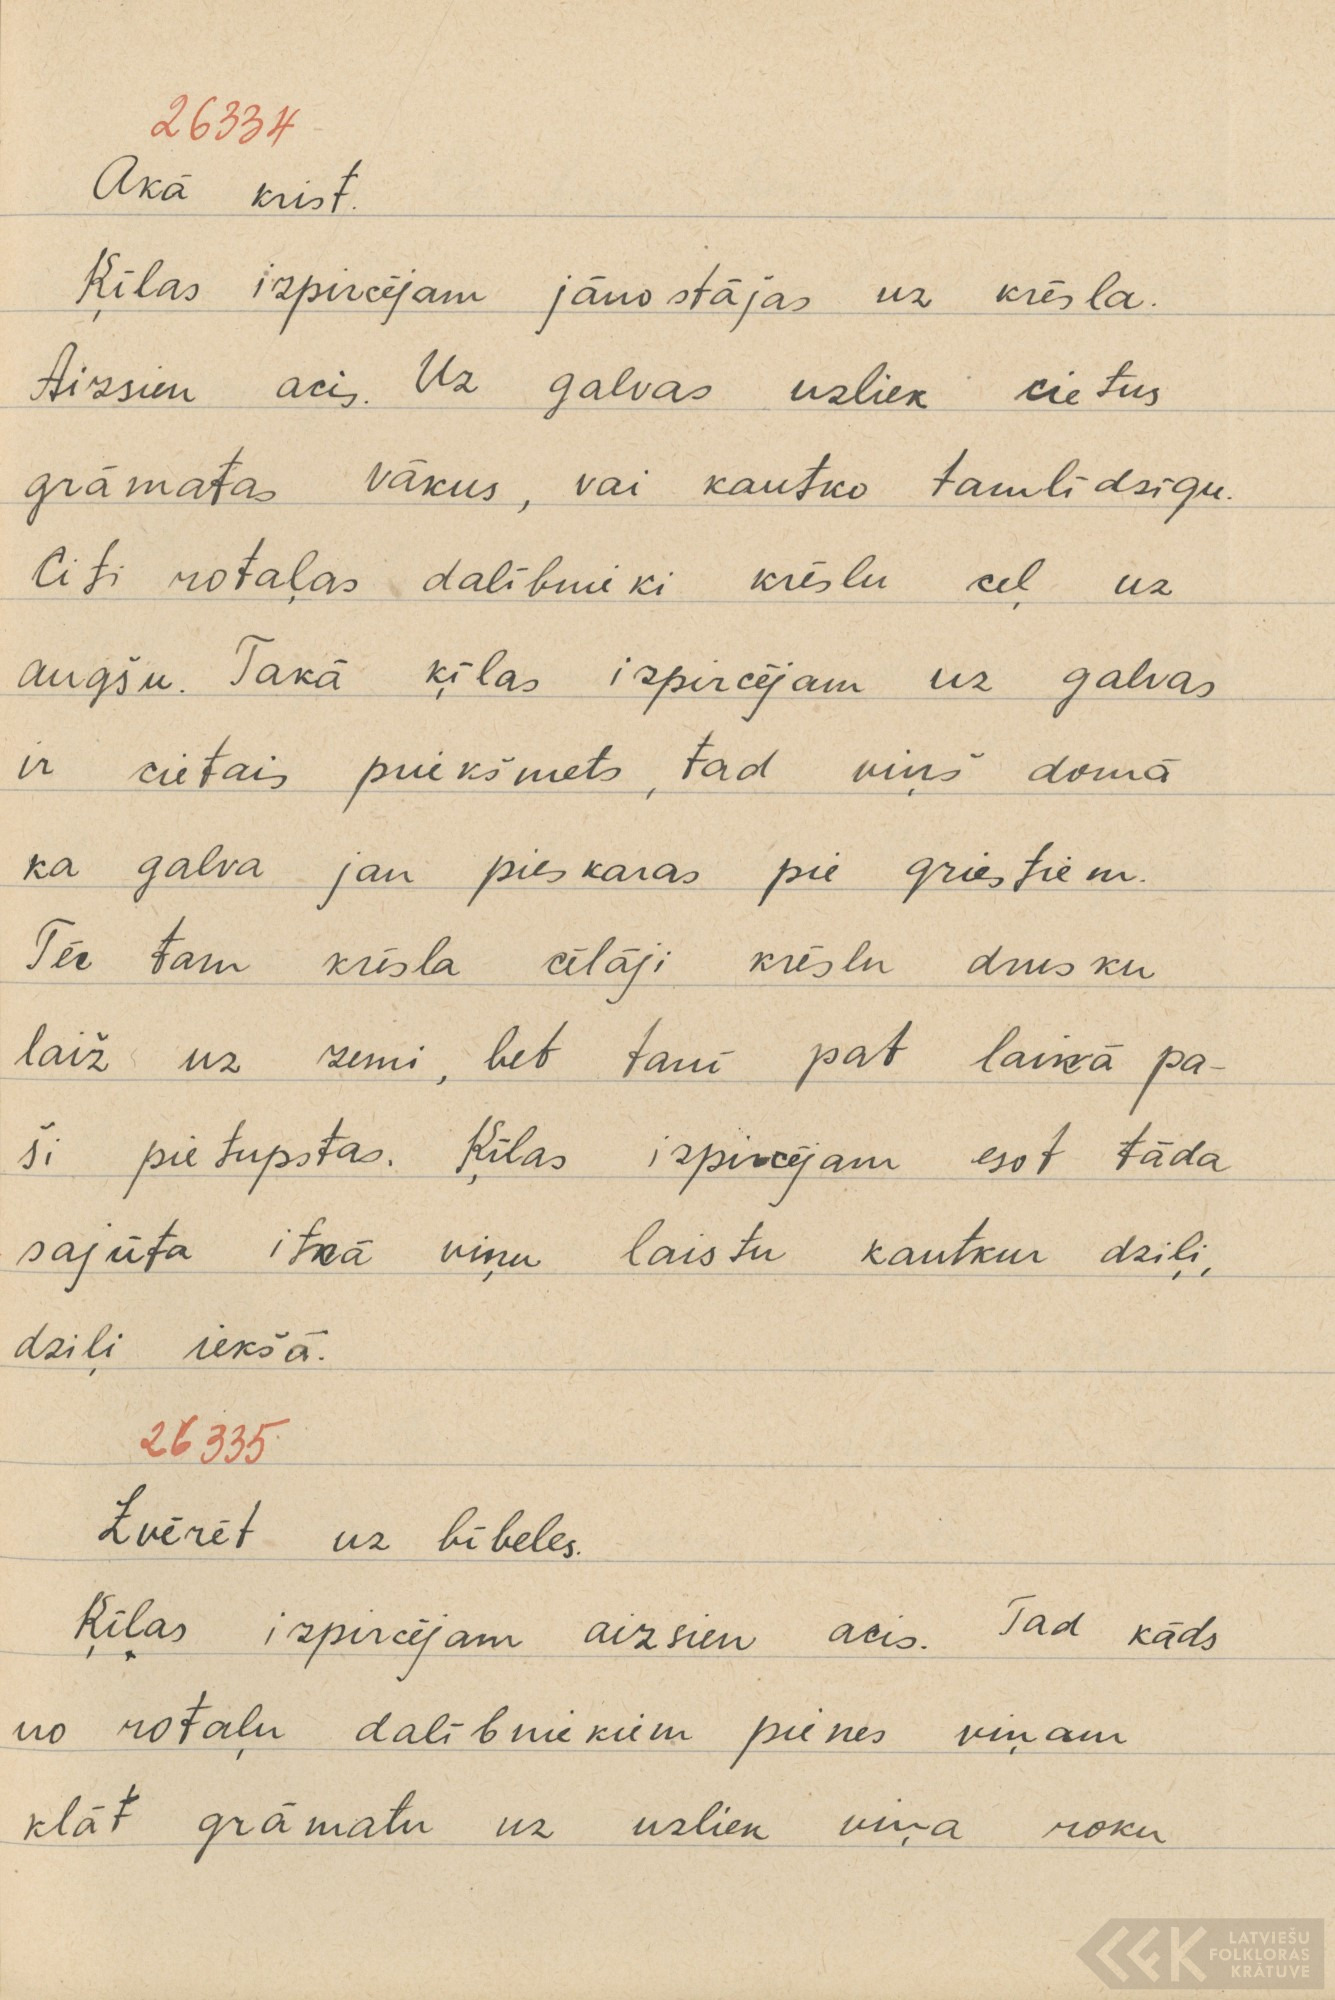 26334
Akā krist.
Ķīlas izpircējam jānostājas uz krēsla.
Aizsien acis. Uz galvas uzliek cietus
grāmatas vākus, vai kautko tamlīdzīgu.
Citi rotaļas dalībnieki krēslu ceļ uz
augšu. Takā ķīlas izpircējam uz galvas
ir cietais priekšmets, tad viņš domā
ka galva jau pieskaras pie griestiem.
Pēc tam krēsla cēlāji krēslu drusku
laiž uz zemi, bet tanī pat laikā pa-
ši pietupstas. Ķīlas izpircējam esot tāda
sajūta itkā viņu laistu kautkur dziļi,
dziļi iekšā.
26335
Zvērēt uz bībeles.
Ķīļas izpircējam aizsien acis. Tad kāds
no rotaļu dalībniekiem pienes viņam
klāt grāmatu uz uzliek viņa roku
LATVIEŠU
FOLKLORAS
KRĀTUVE